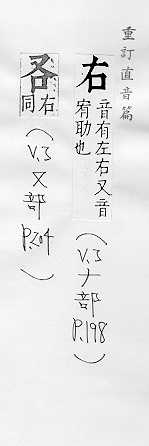 重訂直音篇
右
音有左右又音
宥助也
(V.3 ナ部 P.198)
右
同
(V.3 又部 P.204)